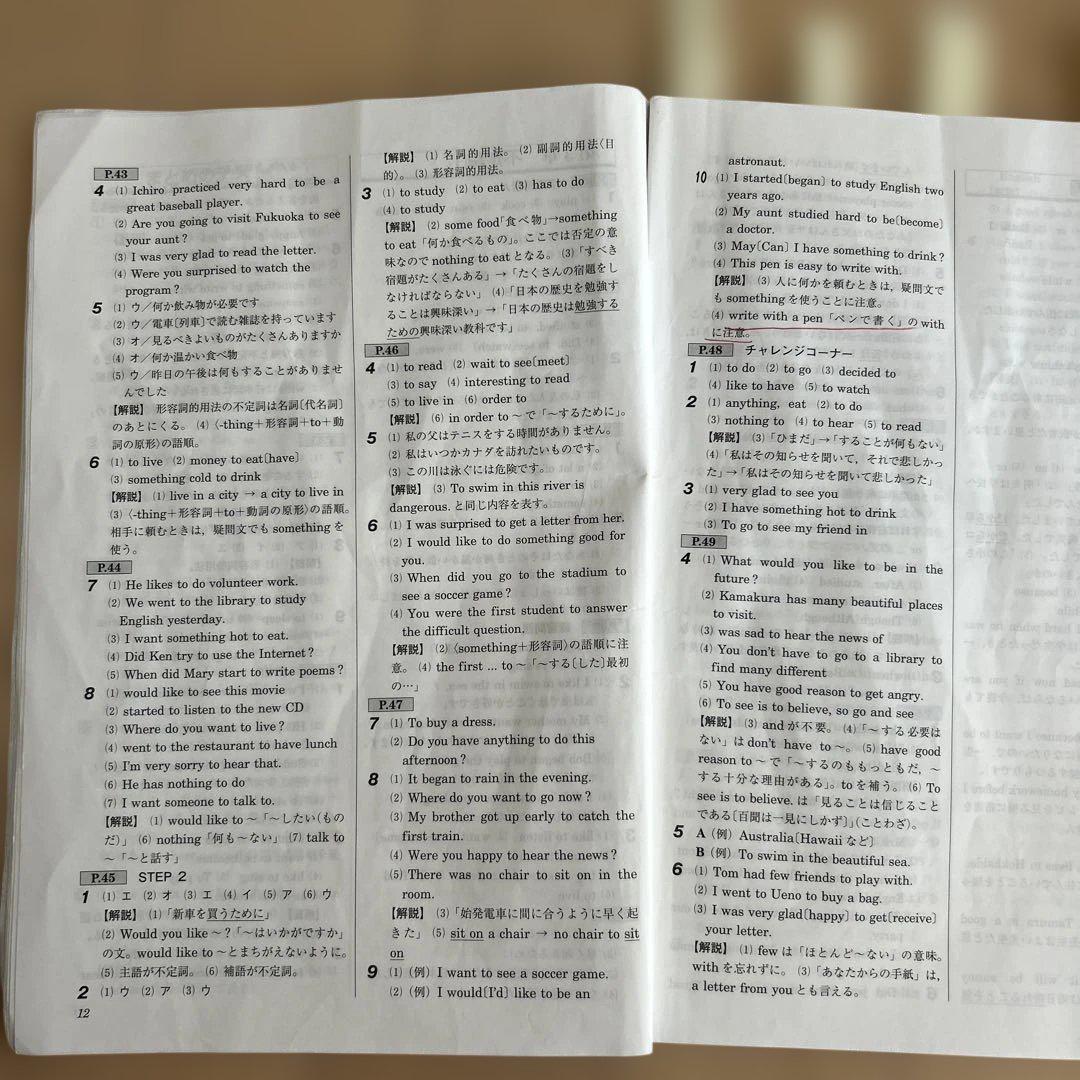 P.43
4 (1) Ichiro practiced very hard to be a
great baseball player.
(2) Are you going to visit Fukuoka to see
your aunt?
(3) I was very glad to read the letter.
(4) Were you surprised to watch the
program?
5 (1) ウ／何か飲み物が必要です
(2) ウ／電車〔列車〕で読む雑誌を持っています
(3) オ／見るべきよいものがたくさんありますか
(4) オ／何か温かい食べ物
(5) ウ／昨日の午後は何もすることがありませ
んでした
【解説】 形容詞的用法の不定詞は名詞〔代名詞〕
のあとにくる。(4)〈-thing＋形容詞＋to＋動
詞の原形〉の語順。
6 (1) to live (2) money to eat〔have〕
(3) something cold to drink
【解説】 (1) live in a city → a city to live in
(3)〈-thing＋形容詞＋to＋動詞の原形〉の語順。
相手に頼むときは，疑問文でも something を
使う。
P.44
7 (1) He likes to do volunteer work.
(2) We went to the library to study
English yesterday.
(3) I want something hot to eat.
(4) Did Ken try to use the Internet?
(5) When did Mary start to write poems?
8 (1) would like to see this movie
(2) started to listen to the new CD
(3) Where do you want to live?
(4) went to the restaurant to have lunch
(5) I'm very sorry to hear that.
(6) He has nothing to do
(7) I want someone to talk to.
【解説】 (1) would like to ～「～したい(もの
だ)」 (6) nothing「何も～ない」 (7) talk to
～「～と話す」
P.45 STEP 2
1 (1) エ (2) オ (3) エ (4) イ (5) ア (6) ウ
【解説】 (1)「新車を買うために」
(2) Would you like ～?「～はいかがですか」
の文。would like to ～とまちがえないように。
(5) 主語が不定詞。 (6) 補語が不定詞。
2 (1) ウ (2) ア (3) ウ
12
【解説】 (1) 名詞的用法。 (2) 副詞的用法〈目
的〉。 (3) 形容詞的用法。
3 (1) to study (2) to eat (3) has to do
(4) to study
【解説】 (2) some food「食べ物」→something
to eat「何か食べるもの」。ここでは否定の意
味なので nothing to eat となる。 (3)「すべき
宿題がたくさんある」→「たくさんの宿題をし
なければならない」 (4)「日本の歴史を勉強す
ることは興味深い」→「日本の歴史は勉強する
ための興味深い教科です」
P.46
4 (1) to read (2) wait to see〔meet〕
(3) to say (4) interesting to read
(5) to live in (6) order to
【解説】 (6) in order to ～ で「～するために」。
5 (1) 私の父はテニスをする時間がありません。
(2) 私はいつかカナダを訪れたいものです。
(3) この川は泳ぐには危険です。
【解説】 (3) To swim in this river is
dangerous. と同じ内容を表す。
6 (1) I was surprised to get a letter from her.
(2) I would like to do something good for
you.
(3) When did you go to the stadium to
see a soccer game?
(4) You were the first student to answer
the difficult question.
【解説】 (2)〈something＋形容詞〉の語順に注
意。 (4) the first … to ～「～する〔した〕最初
の…」
P.47
7 (1) To buy a dress.
(2) Do you have anything to do this
afternoon?
8 (1) It began to rain in the evening.
(2) Where do you want to go now?
(3) My brother got up early to catch the
first train.
(4) Were you happy to hear the news?
(5) There was no chair to sit on in the
room.
【解説】 (3)「始発電車に間に合うように早く起
きた」 (5) sit on a chair → no chair to sit
on
9 (1) (例) I want to see a soccer game.
(2) (例) I would〔I'd〕 like to be an
astronaut.
10 (1) I started〔began〕 to study English two
years ago.
(2) My aunt studied hard to be〔become〕
a doctor.
(3) May〔Can〕 I have something to drink?
(4) This pen is easy to write with.
【解説】 (3) 人に何かを頼むときは，疑問文で
も something を使うことに注意。
(4) write with a pen「ペンで書く」の with
に注意。
P.48 チャレンジコーナー
1 (1) to do (2) to go (3) decided to
(4) like to have (5) to watch
2 (1) anything, eat (2) to do
(3) nothing to (4) to hear (5) to read
【解説】 (3)「ひまだ」→「することが何もない」
(4)「私はその知らせを聞いて，それで悲しかっ
た」→「私はその知らせを聞いて悲しかった」
3 (1) very glad to see you
(2) I have something hot to drink
(3) To go to see my friend in
P.49
4 (1) What would you like to be in the
future?
(2) Kamakura has many beautiful places
to visit.
(3) was sad to hear the news of
(4) You don't have to go to a library to
find many different
(5) You have good reason to get angry.
(6) To see is to believe, so go and see
【解説】 (3) and が不要。 (4)「～する必要は
ない」は don't have to ～。 (5) have good
reason to ～ で「～するのももっともだ，～
する十分な理由がある」。to を補う。 (6) To
see is to believe. は「見ることは信じること
である〔百聞は一見にしかず〕」(ことわざ)。
5 A (例) Australia〔Hawaii など〕
B (例) To swim in the beautiful sea.
6 (1) Tom had few friends to play with.
(2) I went to Ueno to buy a bag.
(3) I was very glad〔happy〕 to get〔receive〕
your letter.
【解説】 (1) few は「ほとんど～ない」の意味。
with を忘れずに。 (3)「あなたからの手紙」は，
a letter from you とも言える。